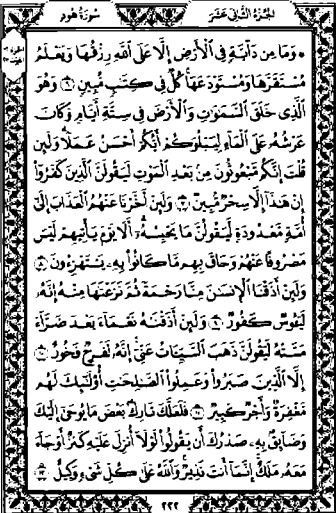 الجزء الثاني عشر
سورة هود
۞ وَمَا مِن دَآبَّةٍ فِي ٱلْأَرْضِ إِلَّا عَلَى ٱللَّهِ رِزْقُهَا وَيَعْلَمُ
مُسْتَقَرَّهَا وَمُسْتَوْدَعَهَا كُلٌّ فِي كِتَٰبٍ مُّبِينٍ ٦ وَهُوَ
ٱلَّذِي خَلَقَ ٱلسَّمَٰوَٰتِ وَٱلْأَرْضَ فِي سِتَّةِ أَيَّامٍ وَكَانَ
عَرْشُهُۥ عَلَى ٱلْمَآءِ لِيَبْلُوَكُمْ أَيُّكُمْ أَحْسَنُ عَمَلًا وَلَئِن
قُلْتَ إِنَّكُم مَّبْعُوثُونَ مِنۢ بَعْدِ ٱلْمَوْتِ لَيَقُولَنَّ ٱلَّذِينَ كَفَرُوٓا۟
إِنْ هَٰذَآ إِلَّا سِحْرٌ مُّبِينٌ ٧ وَلَئِنْ أَخَّرْنَا عَنْهُمُ ٱلْعَذَابَ إِلَىٰٓ
أُمَّةٍ مَّعْدُودَةٍ لَّيَقُولُنَّ مَا يَحْبِسُهُۥٓ أَلَا يَوْمَ يَأْتِيهِمْ لَيْسَ
مَصْرُوفًا عَنْهُمْ وَحَاقَ بِهِم مَّا كَانُوا۟ بِهِۦ يَسْتَهْزِءُونَ ٨
وَلَئِنْ أَذَقْنَا ٱلْإِنسَٰنَ مِنَّا رَحْمَةً ثُمَّ نَزَعْنَٰهَا مِنْهُ إِنَّهُۥ
لَيَـُٔوسٌ كَفُورٌ ٩ وَلَئِنْ أَذَقْنَٰهُ نَعْمَآءَ بَعْدَ ضَرَّآءَ
مَسَّتْهُ لَيَقُولَنَّ ذَهَبَ ٱلسَّيِّـَٔاتُ عَنِّيٓ إِنَّهُۥ لَفَرِحٌ فَخُورٌ ١٠
إِلَّا ٱلَّذِينَ صَبَرُوا۟ وَعَمِلُوا۟ ٱلصَّٰلِحَٰتِ أُو۟لَٰٓئِكَ لَهُم
مَّغْفِرَةٌ وَأَجْرٌ كَبِيرٌ ١١ فَلَعَلَّكَ تَارِكٌۢ بَعْضَ مَا يُوحَىٰٓ إِلَيْكَ
وَضَآئِقٌۢ بِهِۦ صَدْرُكَ أَن يَقُولُوا۟ لَوْلَآ أُنزِلَ عَلَيْهِ كَنزٌ أَوْ جَآءَ
مَعَهُۥ مَلَكٌ إِنَّمَآ أَنتَ نَذِيرٌ وَٱللَّهُ عَلَىٰ كُلِّ شَيْءٍ وَكِيلٌ ١٢
٢٢٢